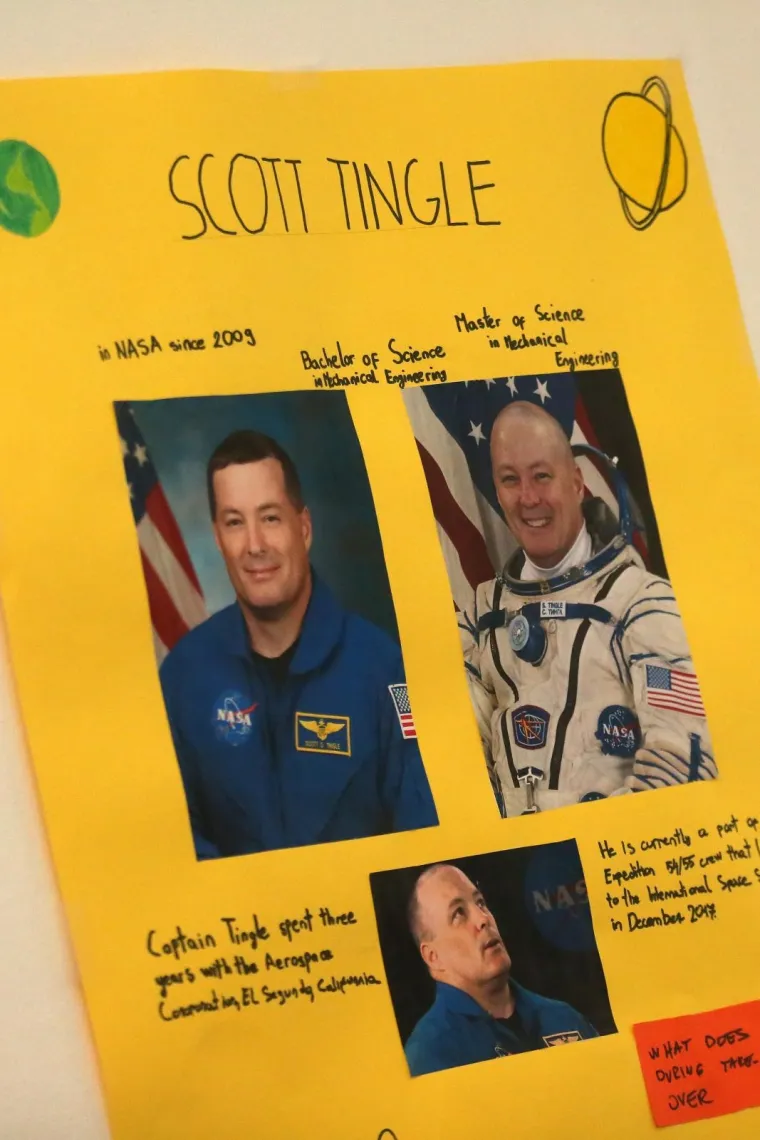 SCOTT TINGLE
in NASA since 2009
Bachelor of Science
in Mechanical Engineering
Master of Science
in Mechanical
Engineering
NASA
SCOTT D. TINGLE
S. TINGLE
NASA
He is currently a part of
Expedition 54/55 crew that
to the International Space S
in December 2017.
NAS
Captain Tingle spent three
years with the Aerospace
Corporation, El Segundo, California
WHAT DOES
DURING TAKE-
OVER